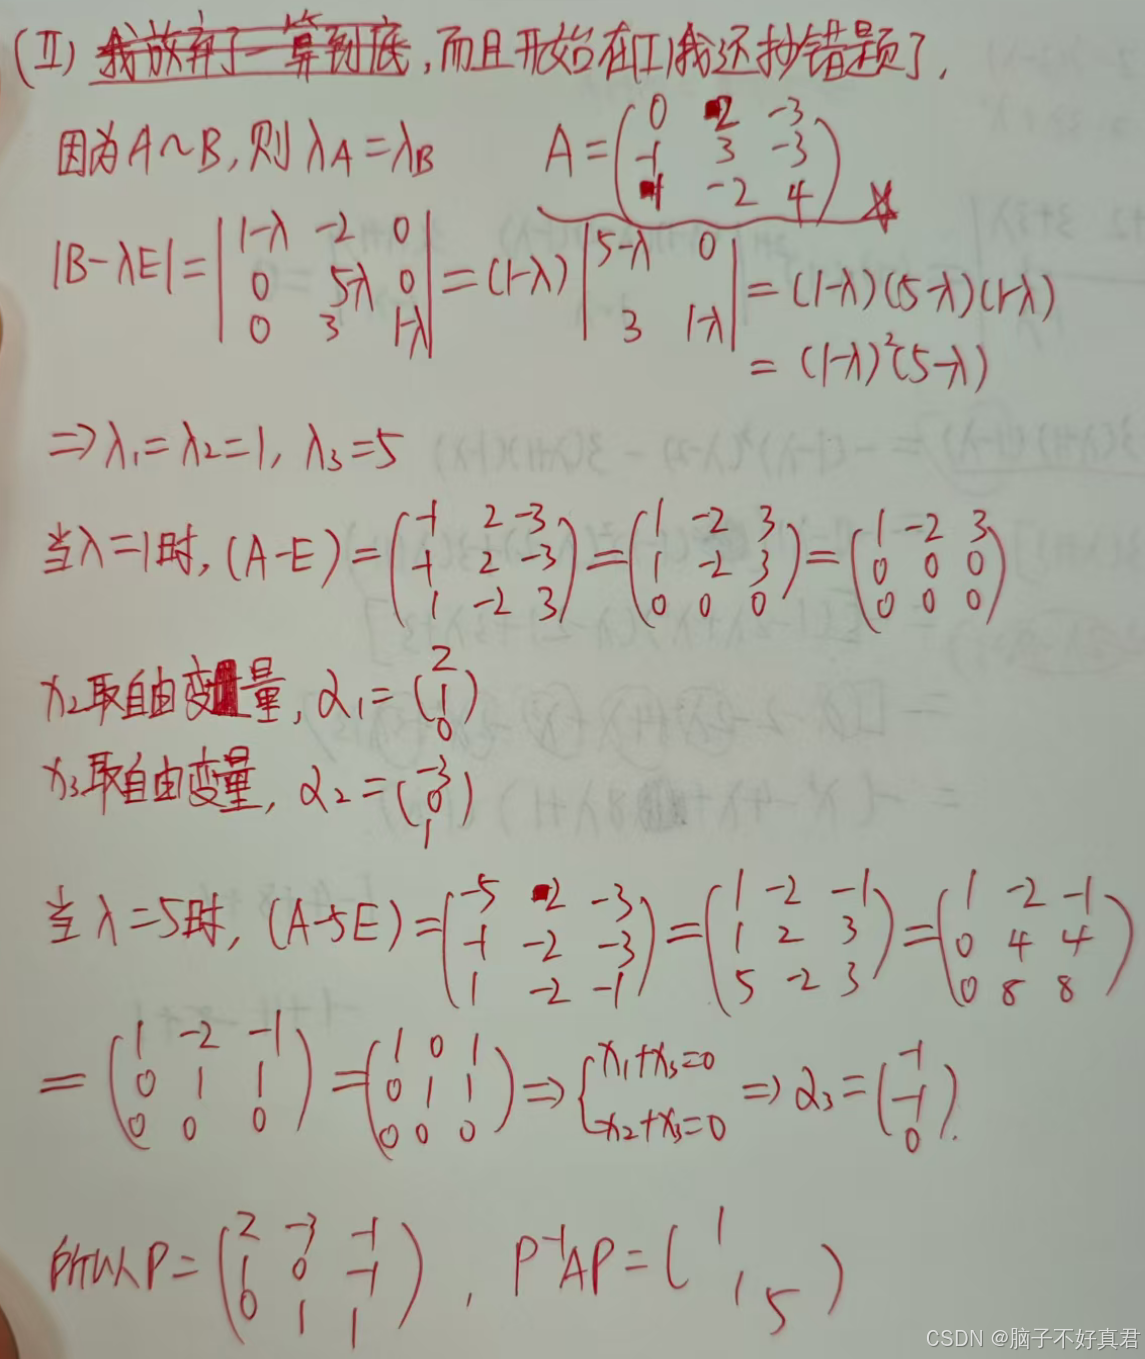 (II) 我放弃了一算到底,而且开始在(I)我还抄错题了,
因为A~B,则 λA=λB A=(0 2 -3; -1 3 -3; 1 -2 4)
|B-λE|=|1-λ -2 0; 0 5-λ 0; 0 3 1-λ|=(1-λ)|5-λ 0; 3 1-λ|=(1-λ)(5-λ)(1-λ)
=(1-λ)²(5-λ)
⇒λ₁=λ₂=1, λ₃=5
当λ=1时, (A-E)=(-1 2 -3; -1 2 -3; 1 -2 3)=(1 -2 3; 1 -2 3; 0 0 0)=(1 -2 3; 0 0 0; 0 0 0)
x₂取自由变量, α₁=(2; 1; 0)
x₃取自由变量, α₂=(-3; 0; 1)
当λ=5时, (A-5E)=(-5 2 -3; -1 -2 -3; 1 -2 -1)=(1 -2 -1; 1 2 3; 5 -2 3)=(1 -2 -1; 0 4 4; 0 8 8)
=(1 -2 -1; 0 1 1; 0 0 0)=(1 0 1; 0 1 1; 0 0 0)⇒{x₁+x₃=0; x₂+x₃=0 ⇒α₃=(-1; -1; 0).
所以P=(2 -3 -1; 1 0 -1; 0 1 1), P⁻¹AP=(1 1 5)
CSDN @脑子不好真君